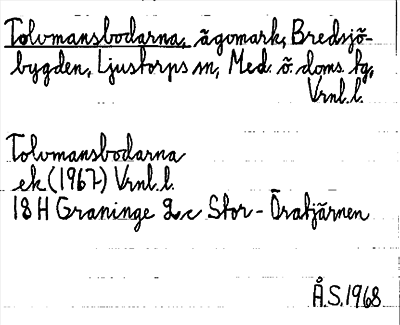 Tolvmansbodarna, ägomark, Bredsjö-
bygden, Ljustorps sn, Med. ö. doms. tg,
Vrnl. l.
Tolvmansbodarna
ek (1967) Vrnl. l.
18 H Graninge 2,c Stor-Öratjärnen
Å.S. 1968